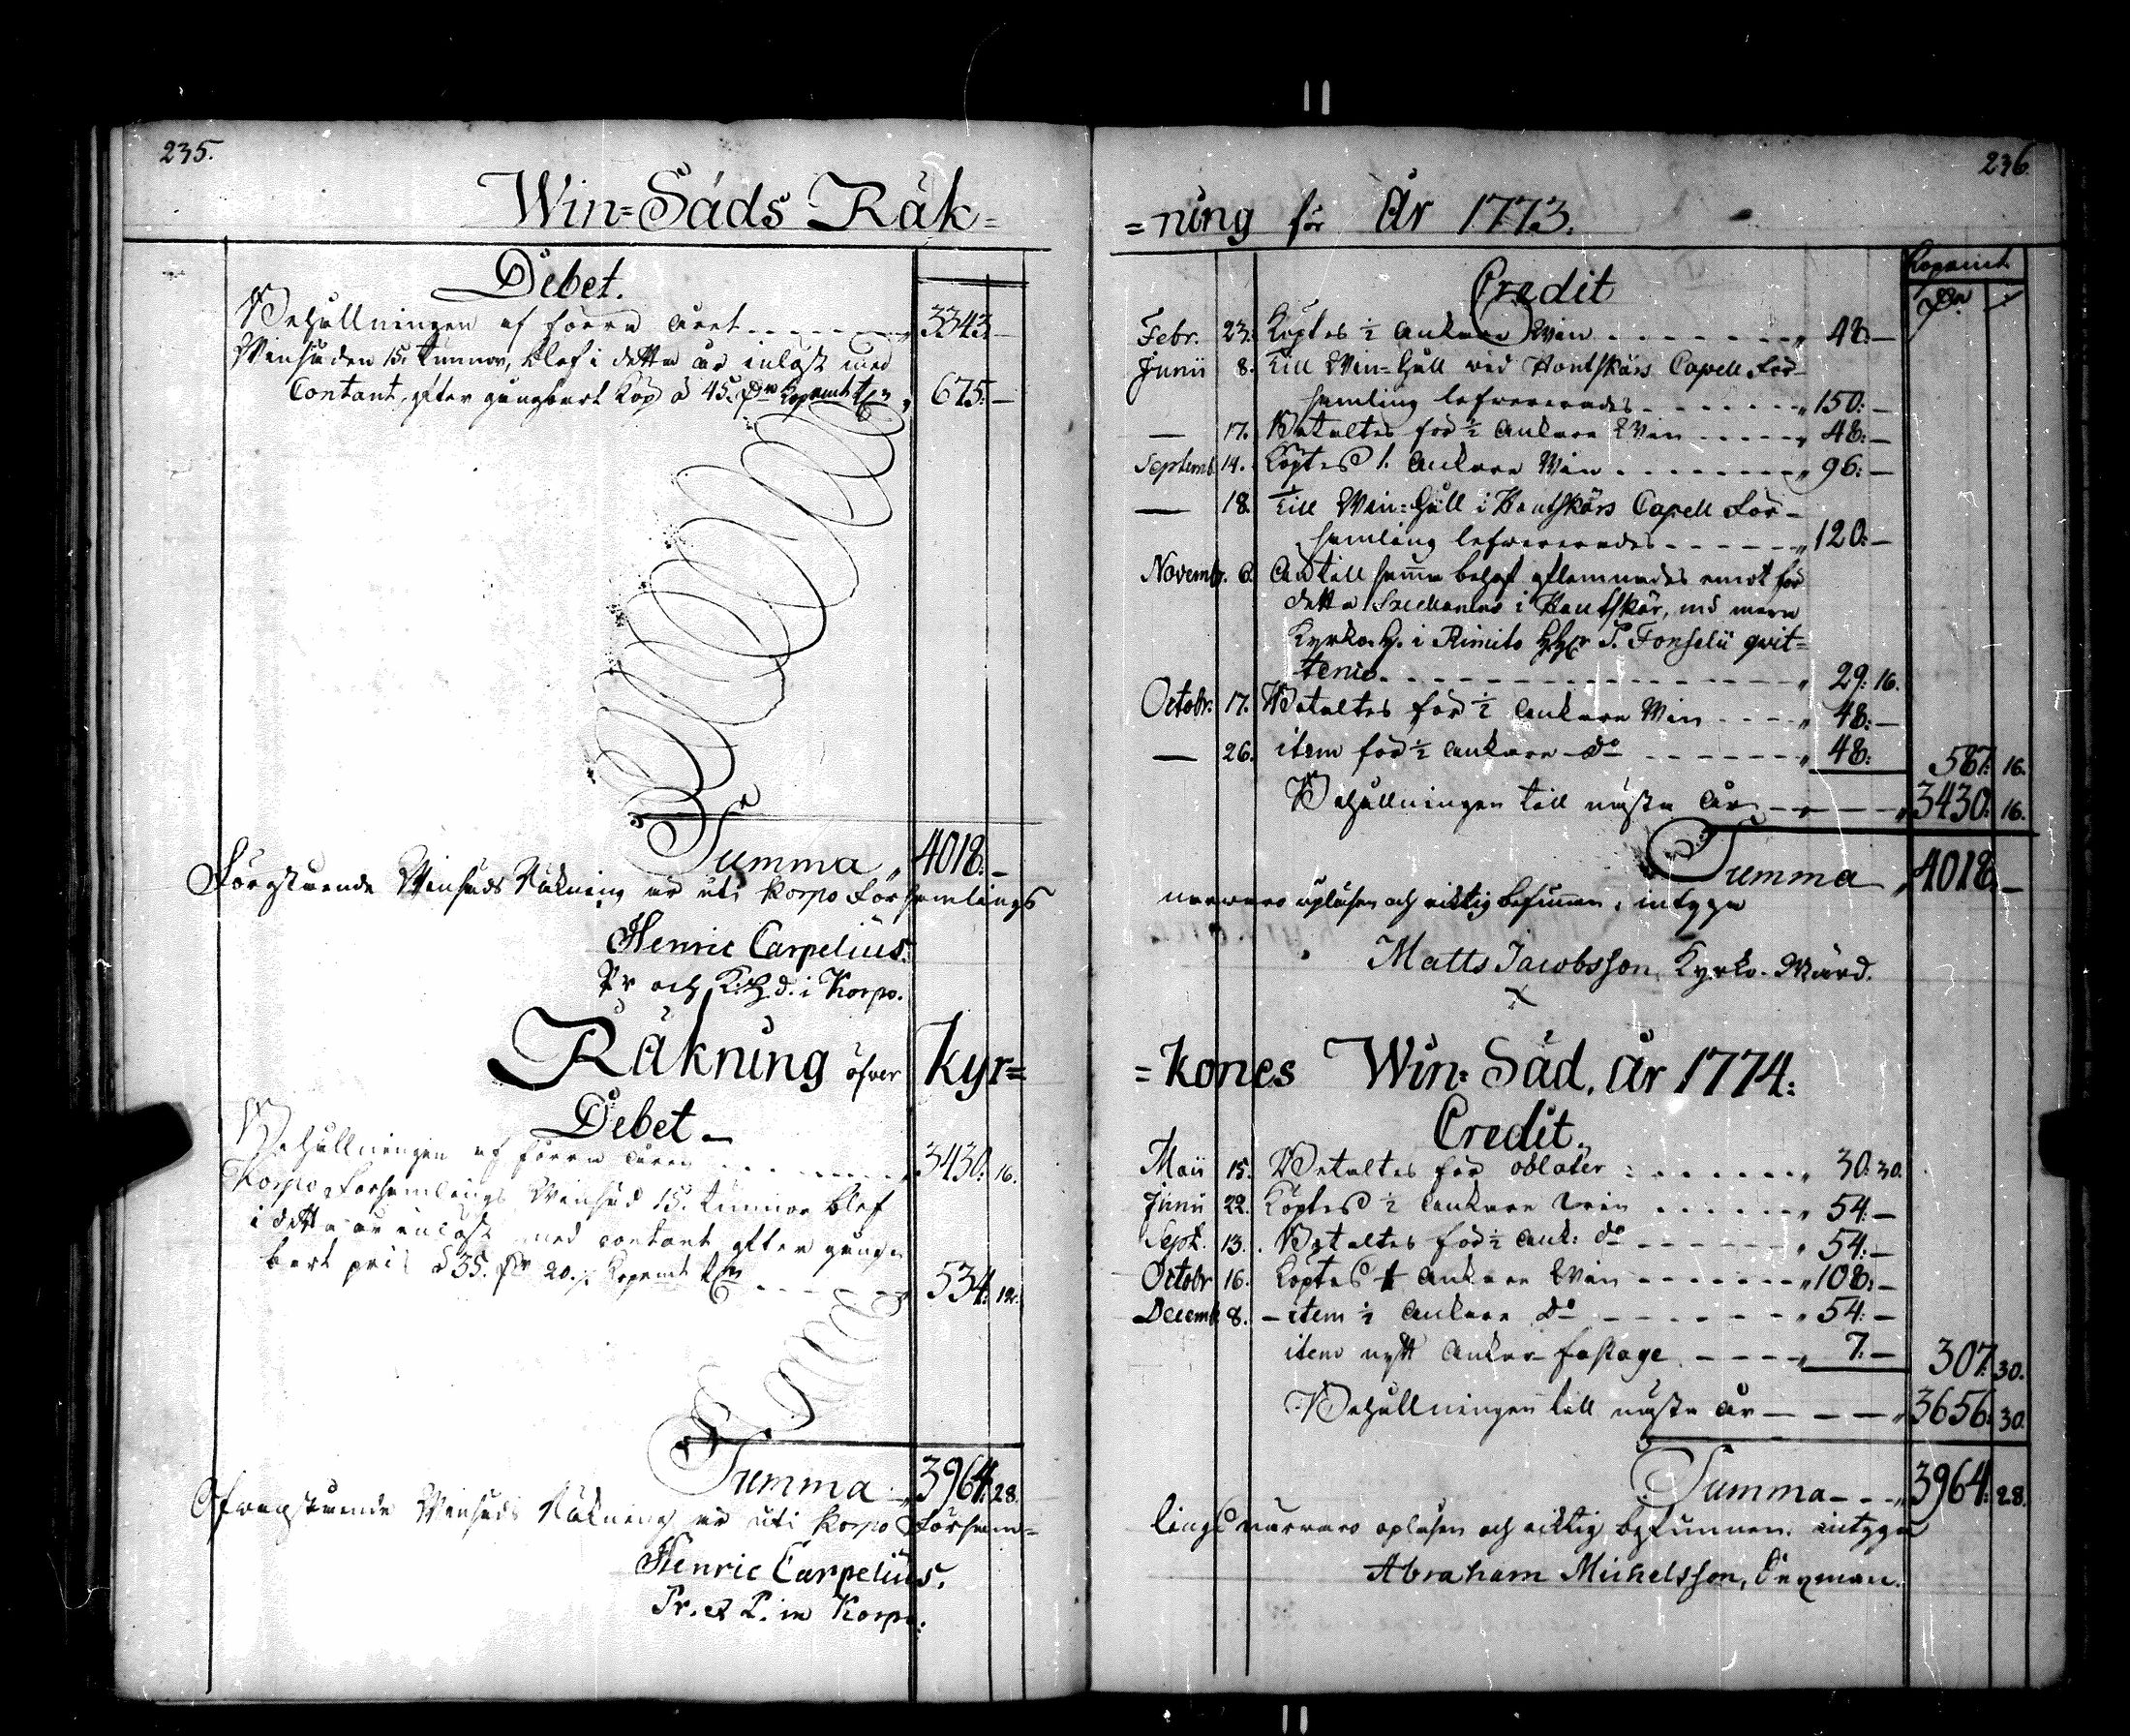 235.
Win=Säds Räk=
Debet.
Behållningen af förra året " 3343: —
Winsäden 15. Tunnor, blef i detta år inlöst med
Contant, efter gångbart Köp à 45. Dr Kopmt t " 675: —
Summa " 4018: —
Föregående Winsäds Räkning är uti Korpo Församlings
Henric Carpelius.
Pr och K.H.d. i Korpo.
Räkning öfver Kyr=
Debet —
Behållningen af förra året " 3430: 16.
Korpo Församlings Winsäd 15. Tunnor blef
i detta år inlöst med contant efter gång-
bart pris à 35. Dr 20. Kopmt t " 534: 12.
Summa " 3964: 28.
Ofvanstående Winsäds Räkning är uti Korpo Församl=
Henric Carpelius.
Pr. & P. in Korpo.
236.
=ning för År 1773.
Kopmt
Credit Dr
Febr. 23. Köptes ½ Ankare Win " 48: —
Junii 8. Till Win=Häll vid Houtskärs Capell För-
samling lefwererades " 150: —
— 17. Betaltes för ½ Ankare Win " 48: —
Septemb. 14. Köptes 1. Ankare Win " 96: —
— 18. Till Win=Häll i Houtskärs Capell För-
samling lefwererades " 120: —
Novembr. 6. Än till samma behof aflemnades emot för
detta Sacellanens i Houtskär, nu mera
Kyrko.H. i Rimito Hr P. Fonselii qvit=
tence " 29: 16.
Octobr. 17. Betaltes för ½ Ankare Win " 48: —
— 26. item för ½ Ankare do " 48: 587: 16.
Behållningen till nästa År " 3430: 16.
Summa " 4018: —
närwaro upläsen och riktig befunnen, intyga
Matts Jacobsson, Kyrko-Wärd.
=kones Win=Säd, år 1774:
Credit.
Maii 15. Betaltes för oblater " 30: 30.
Junii 22. Köptes ½ Ankare Win " 54: —
Sept. 13. Betaltes för ½ Ank: do " 54: —
Octobr 16. Köptes 1 Ankare Win " 108: —
Decemb. 8. — item ½ Ankare do " 54: —
item nytt Ankar-fastage " 7: — 307: 30.
Behållningen till nästa år " 3656: 30.
Summa " 3964: 28.
lings närwaro upläsen och riktig befunnen, intyga
Abraham Michelsson, Öroman.